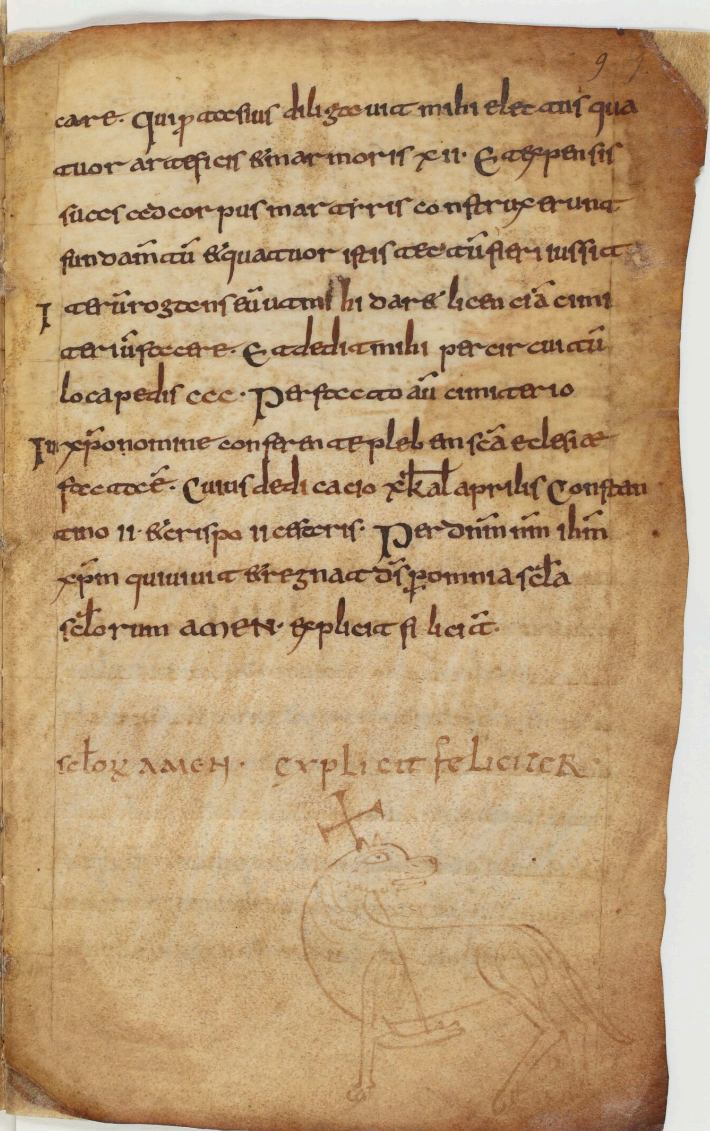 99.
care. Qui p̱ tocsius diligtouit mihi electus qua
tuor arteficis &marmoris xii. Et expensis
succs ced corpus martirris construxerunt
fundam̄tū &quatuor istis tectū fieri iussit
Iterū rogtens eū ut mihi dare licenciā cimi
teriū facere. Et dedit mihi per circuitū
loca pedis ccc. Perfecto aū cimiterio
In xp̄o nomine conferente plebem sc̄a eclesiae
facta ē. Cuius dedicacio x kal aprilis Constan
tino ii. &crispo ii cesseris. Per dnm̄ nm̄ ihm̄
xp̄m qui uiuit &regnat ds̄ p̱ omnia scl̄a
scl̄orum AMEN. explicit filicit̄.
scl̄oꝝ AMEN. explicit feliciter